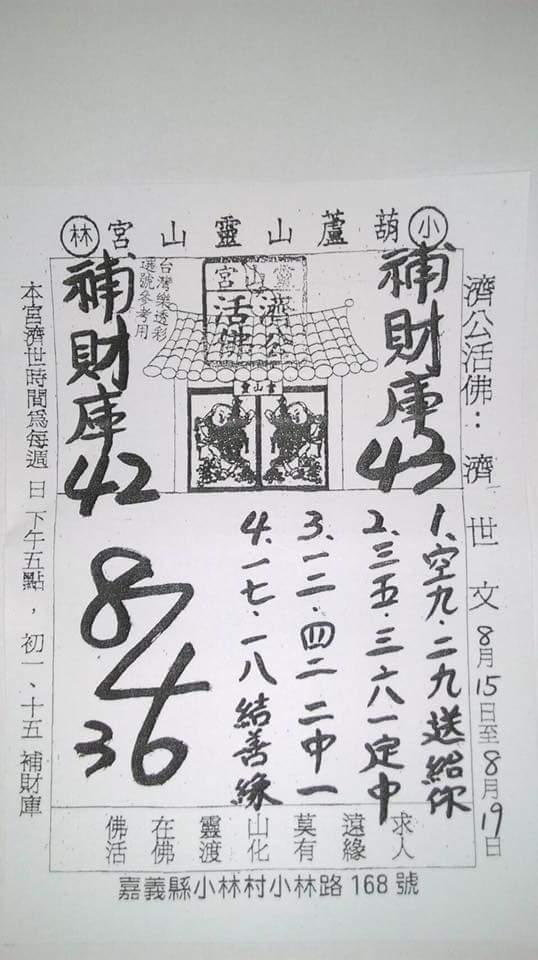 小林
葫蘆山靈山宮
補財庫
43
補財庫
42
台灣樂透彩
選號參考用
靈山宮
濟公
活佛
濟公活佛：濟世文 8月15日至8月19日
1、空九·二九送給你
2、三五·三六一定中
3、一二·四二二中一
4、一七·一八結善緣
8
4
36
求人
遠緣
莫有
山化
靈渡
在佛
佛活
本宮濟世時間為每週日下午五點，初一、十五補財庫
嘉義縣小林村小林路168號